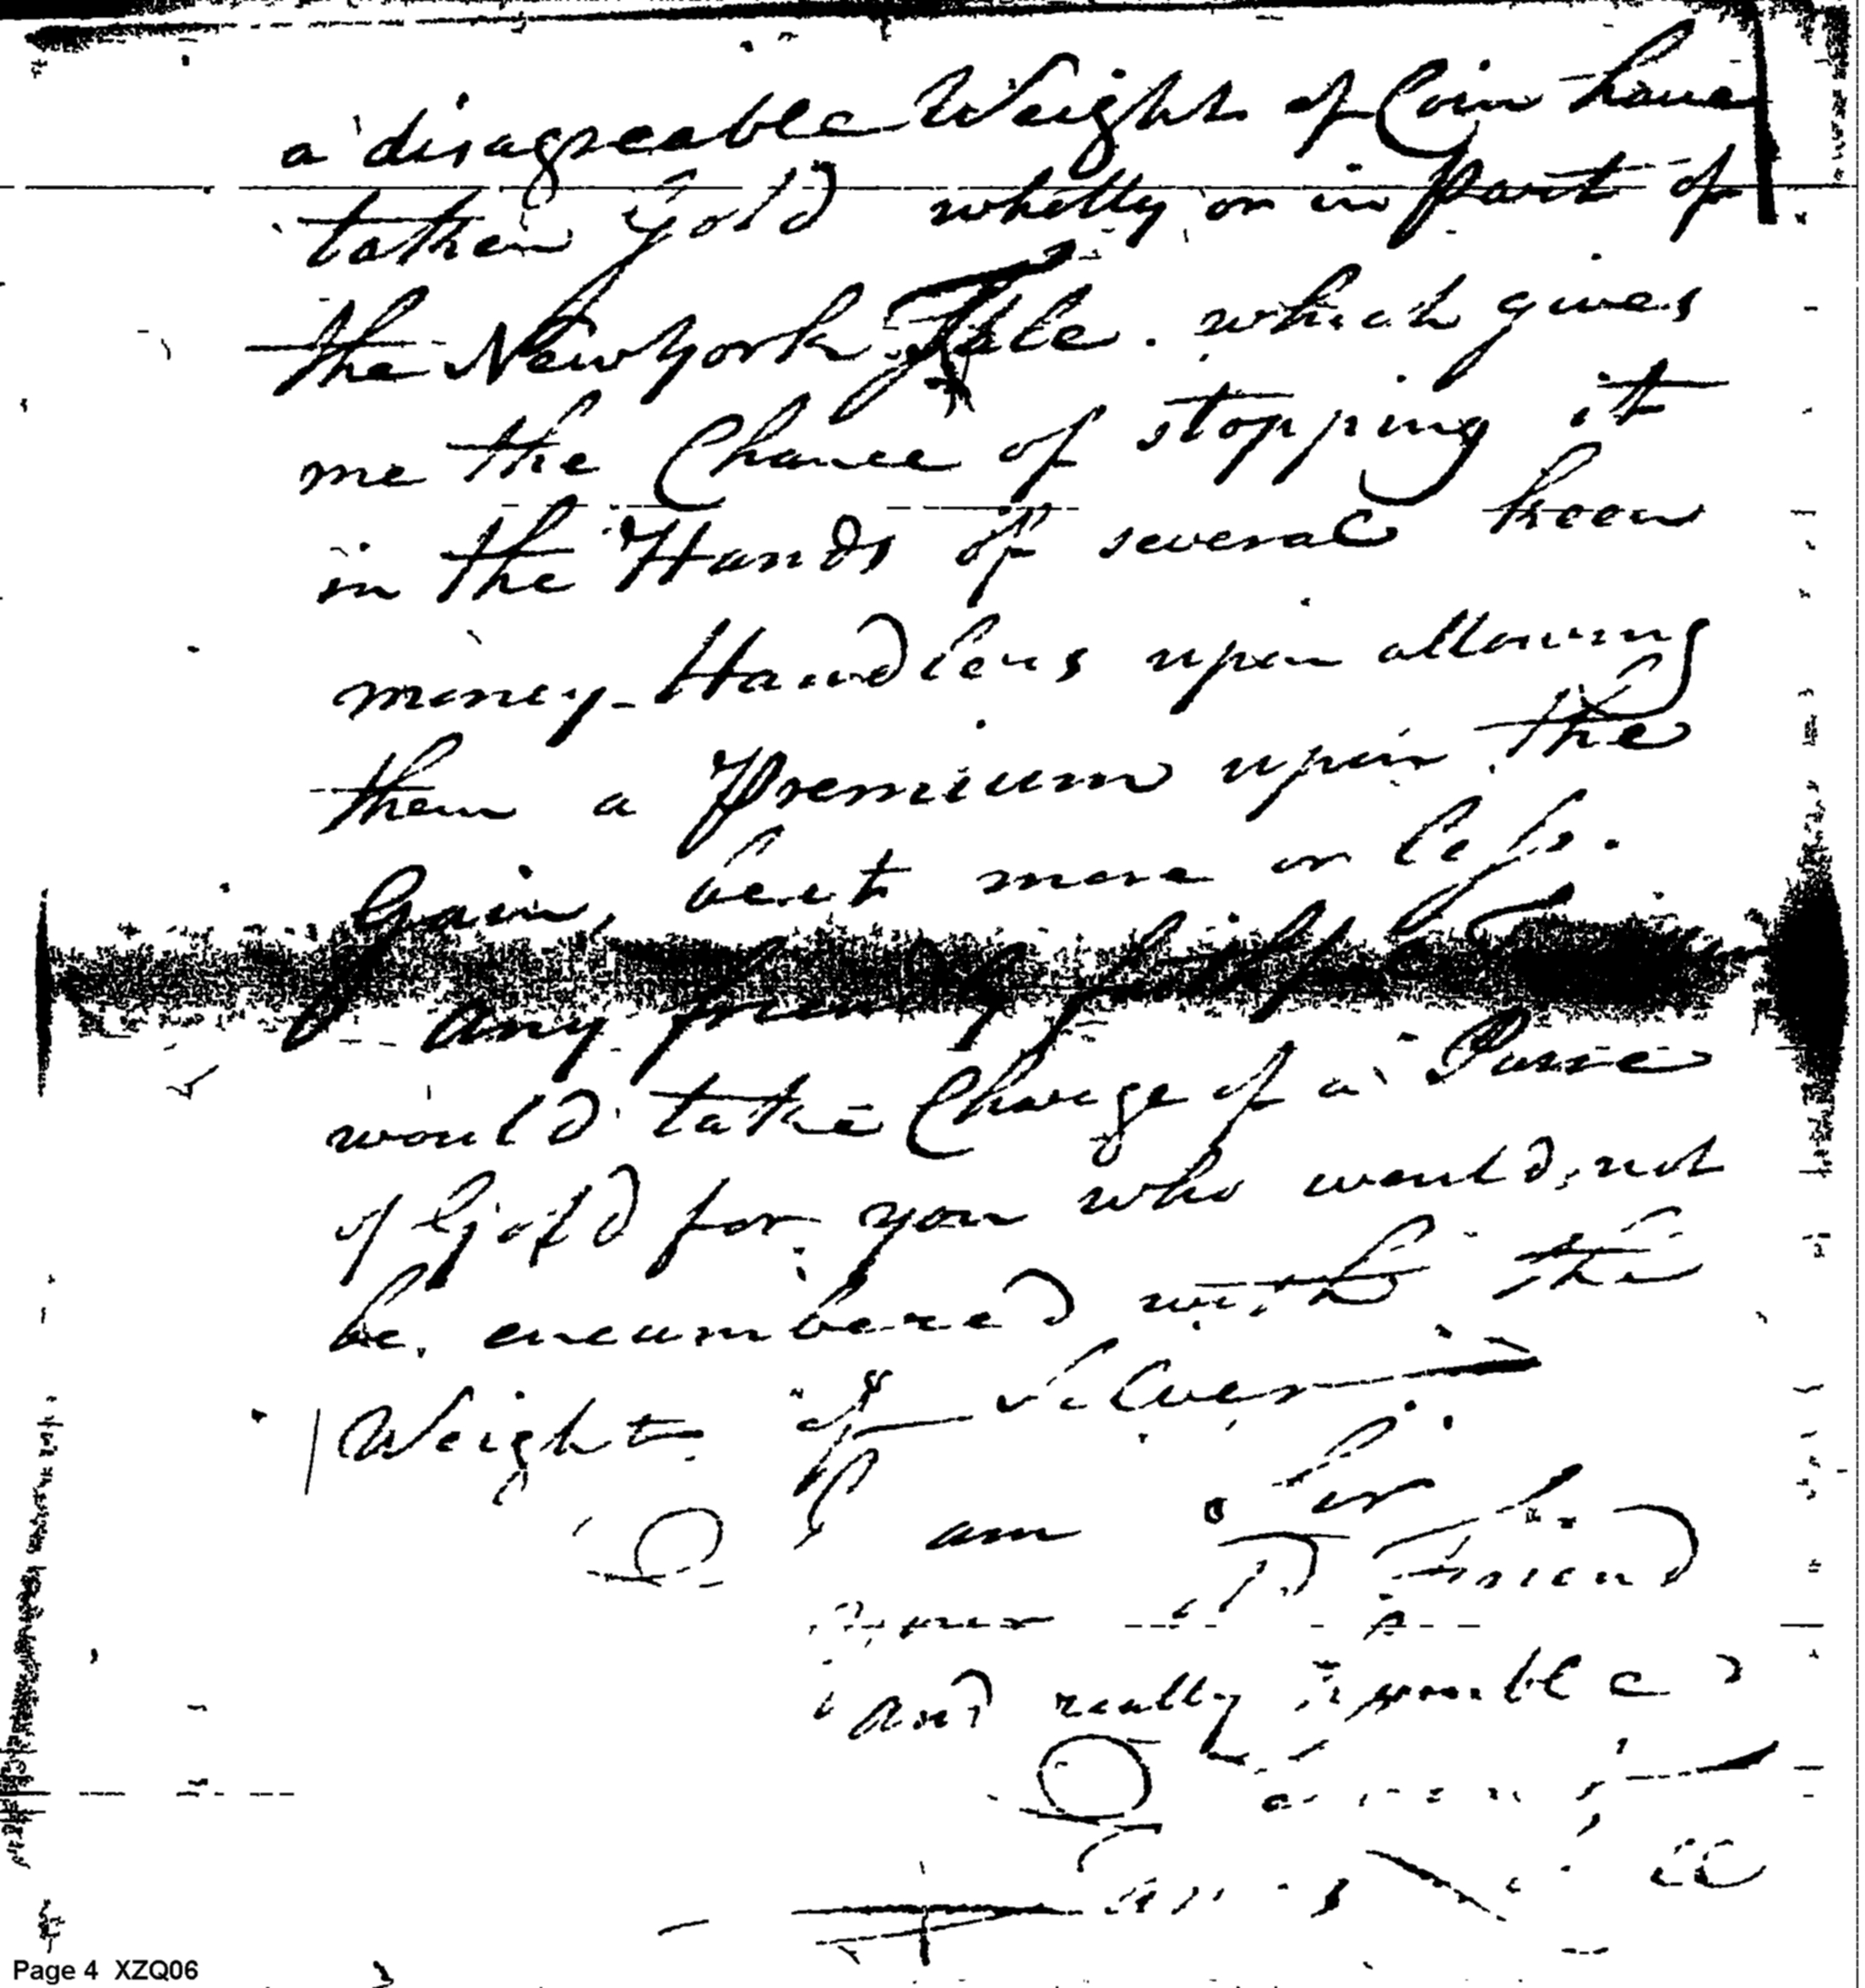 a disagreeable Weight of Coin have
taken Gold wholly or in part of
the New York . which gives
me the Chance of stopping it
in the Hands of several keen
money-Handlers upon allowing
them a Premium upon the
Gain, beit more or less.
any friendly
would take Charge of a Purse
of Gold for you who would not
be encumbered with the
Weight of Silver
I am Sir
your Friend
and really humble
Page 4 XZQ06